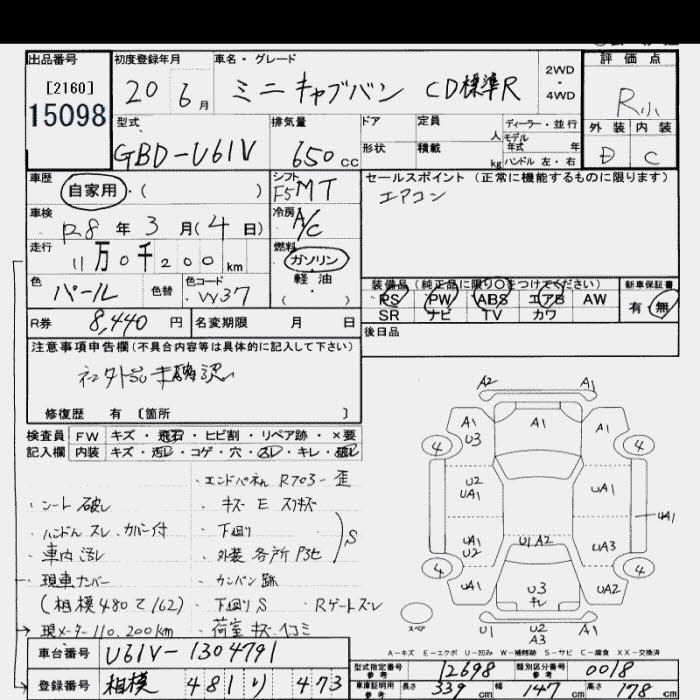 出品番号 初度登録年月 車名・グレード 2WD・4WD 評価点
[2160]
15098 20 6月 ミニキャブバン CD標準R R小
型式 排気量 ドア 定員 人 ディーラー・並行 外装 内装
GBD-U61V 650cc 形状 積載 kg モデル年式 年 ハンドル 左・右 D C
車歴 シフト セールスポイント(正常に機能するものに限ります)
自家用・( ) F5 MT エアコン
車検 冷房
R8年3月(4日) A/C
走行 燃料
11万0千200km ガソリン・軽油・( )
色 色替 色コード 装備品(純正品に限り○をつけてください) 新車保証書
パール W37 PS PW ABS エアB AW 有・無
SR ナビ TV カワ
R券 8,440円 名変期限 月 日 後日品
注意事項申告欄(不具合内容等は具体的に記入して下さい)
社外品未確認
修復歴 有 [箇所 ]
検査員 FW キズ・飛石・ヒビ割・リペア跡・×要
記入欄 内装 キズ・汚レ・コゲ・穴・凹レ・キレ・破レ
・エンドパネル R703-歪
・シート破レ ・キズ E スリキズ
・ハンドルスレ、カバー付 ・下廻り
・車内汚レ ・外装各所 S
・現車ナンバー ・カンバン跡
(相模480て162) ・下廻りS ・Rゲートズレ
・現メーター110,200km ・荷室キズ・凹コミ
A2 A1
A1 U3 A1 A1
4 4
U2 UA1 UA1
UA1
UA1 U2 U1 A2 UA3
4 4
UA1 U3 キレ UA2
スペア U1 U2 A3 A1
A-キズ E-エクボ U-凹み W-補修跡 S-サビ C-腐食 XX-交換済
車台番号 U61V-1304791
型式指定番号 参考 12698 類別区分番号 参考 0018
登録番号 相模 481 り 473
車庫証明用 参考 長さ 339cm 幅 147cm 高さ 178cm